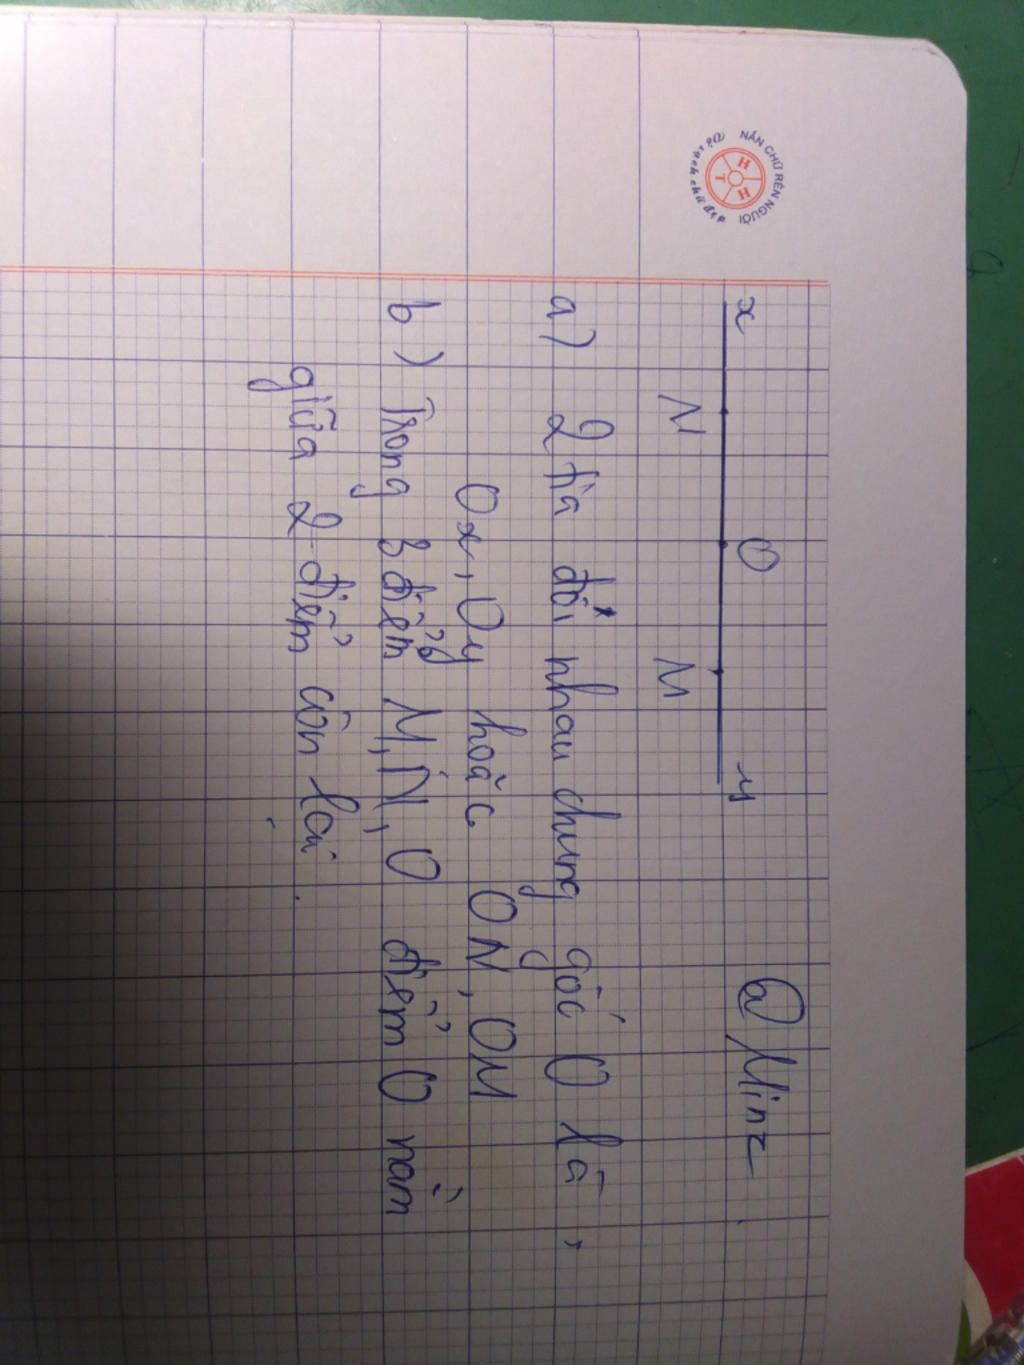 NẮN CHỮ RÈN NGƯỜI
HHT
x O y @ Minz
N M
a) 2 tia đối nhau chung gốc O là,
Ox, Oy hoặc ON, OM
b) Trong 3 điểm M, N, O điểm O nằm
giữa 2 điểm còn lại.